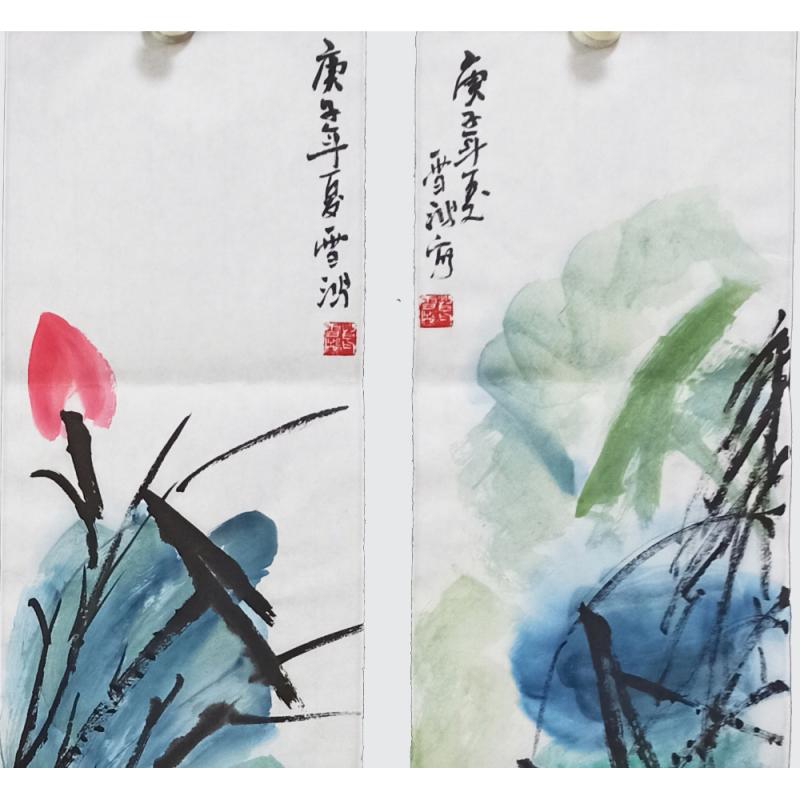 庚子年夏雪湖
庚子年夏
雪湖写